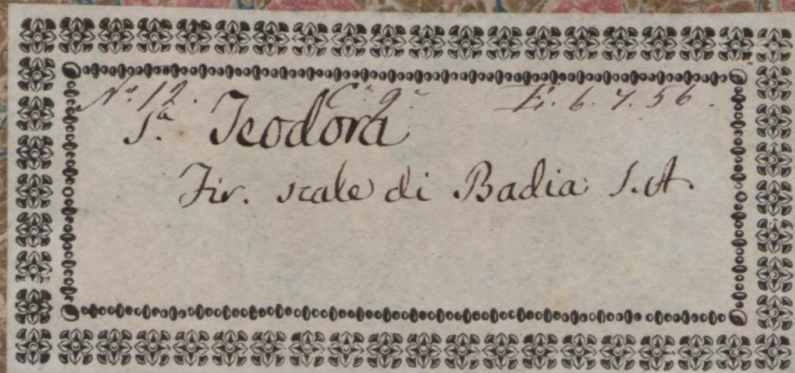 No. 12. Ca. 9a. E. 6. 7. 56.
S.a Teodora
Fir. scale di Badia S.A.